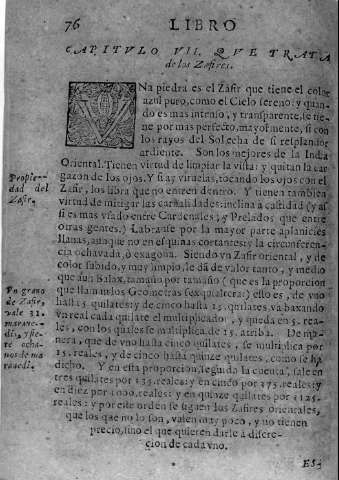 76 LIBRO
CAPITVLO VII. QVE TRATA
de los Zafires.
VNa piedra es el Zafir que tiene el color
azul puro, como el Cielo sereno: y quan-
do es mas intenso, y transparente, se tie-
ne por mas perfecto, mayormente, si con
los rayos del Sol echa de si resplandor
ardiente. Son los mejores de la India
Oriental. Tienen virtud de limpiar la vista: y quitan la car-
gazon de los ojos. Y si ay viruelas, tocando los ojos con el
Zafir, los libra que no entren dentro. Y tienen tambien
virtud de mitigar las calidades: inclina a castidad (y as-
si es mas vsado entre Cardenales, y Prelados que entre
otras gentes.) Labranse por la mayor parte aplanicies
llanas, aunque no en esquinas cortantes: y la circunferen-
cia ochavada, ò exagona. Siendo vn Zafir oriental, y de
color subido, y muy limpio, le dà de valor tanto, y medio
que à un Balax, tamaño por tamaño (que es la proporcion
que llaman los Geometras sexqualtera:) esto es, de vno
hasta 15 quilates: y de cinco hasta 15. quilates, va baxando
vn real cada quilate el multiplicador, y queda en 5. rea-
les, con los quales se multiplica de 15. arriba. De ma-
nera, que de vno hasta cinco quilates, se multiplica por
15. reales, y de cinco hasta quinze quilates, como se ha
dicho. Y en esta proporcion, segunda la cuenta, sale en
tres quilates por 135. reales: y en cinco por 375. reales: y
en diez por 1000. reales: y en quinze quilates por 1125.
reales: y por este orden se siguen los Zafires orientales,
que los que no lo son, valen muy poco, y no tienen
precio, sino el que quieren darle à discre-
cion de cada vno.
Propie-
dad del
Zafir.
Vn grano
de Zafir,
vale 32.
marave-
dis, y sie-
te ocha-
vos de ma
ravedi.